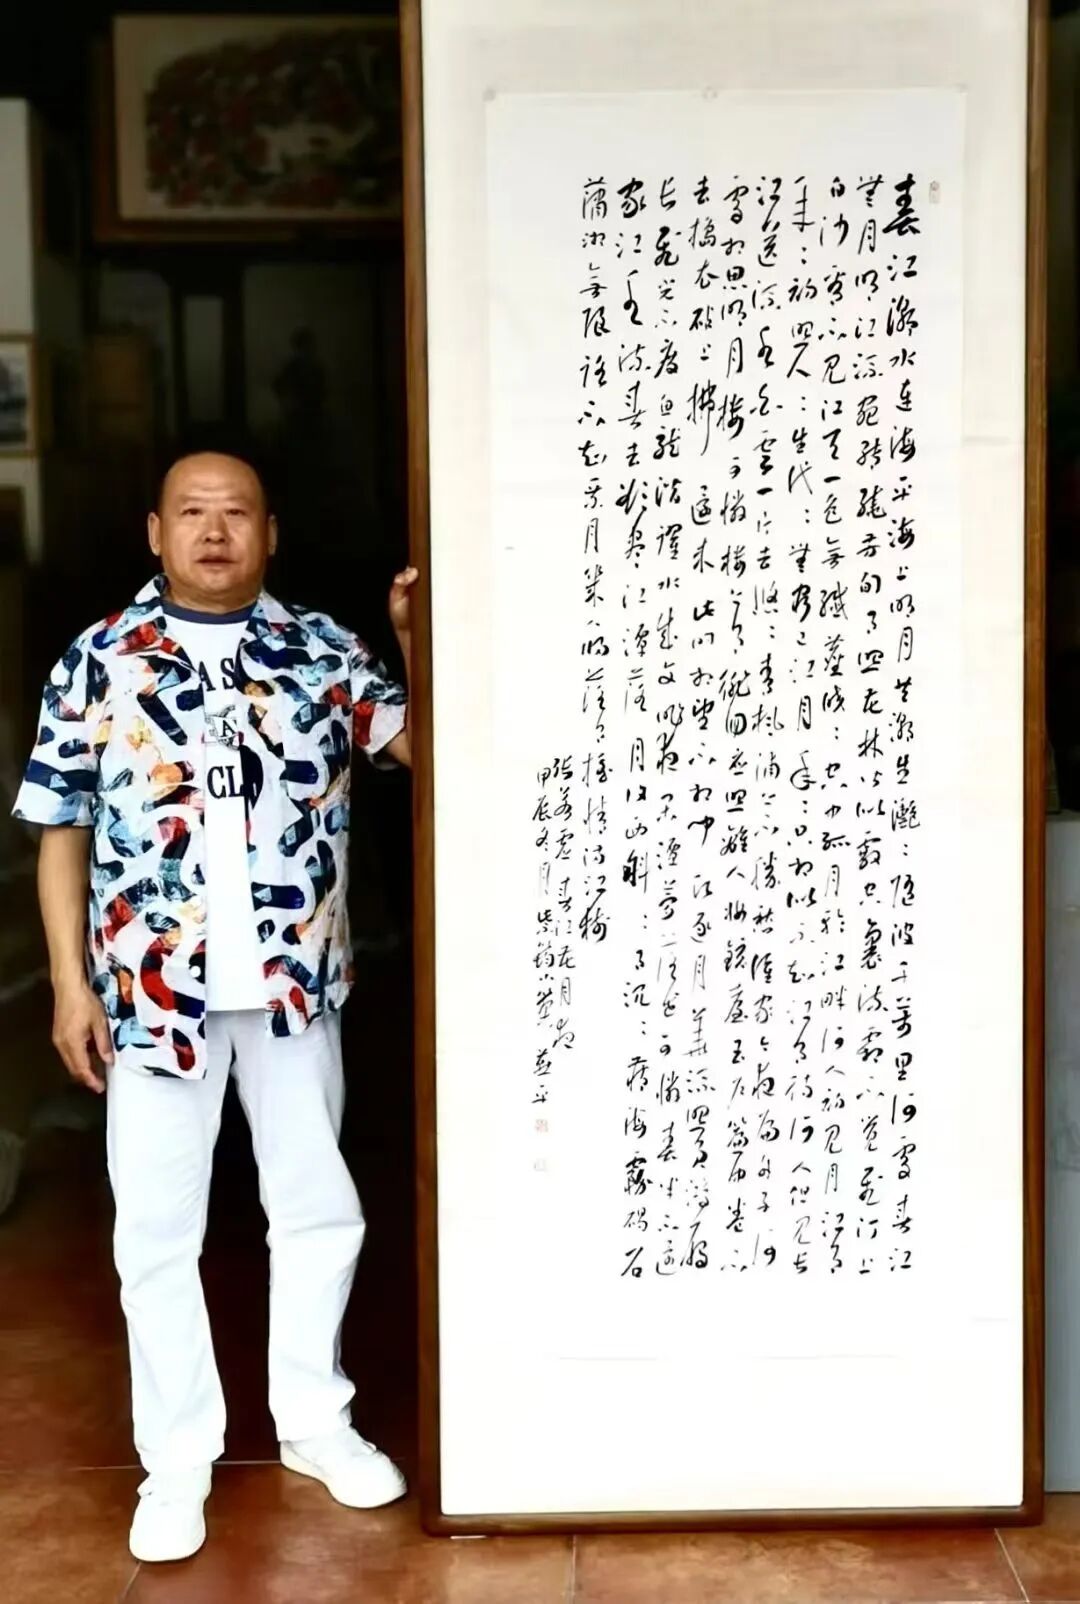 春江潮水连海平海上明月共潮生灩々随波千萬里何處春江
無月明江流宛转繞芳甸月照花林皆似霰空裏流霜不觉飛汀上
白沙看不见江天一色無纖塵皎々空中孤月轮江畔何人初见月江月
何年初照人々生代々無窮已江月年々只相似不知江月待何人但见长
江送流水白雲一片去悠々青枫浦上不勝愁谁家今夜扁舟子何
處相思明月楼可憐楼上月徘徊应照離人妝鏡臺玉户簾中卷不
去搗衣砧上拂還来此时相望不相闻願逐月華流照君鸿雁
长飛光不度鱼龍潜躍水成文昨夜闲潭夢落花可憐春半不還
家江水流春去欲尽江潭落月復西斜々月沉々藏海霧碣石
瀟湘無限路不知乘月幾人歸落月摇情满江樹
張若虚春江花月夜
甲辰冬月
A S
A
CL